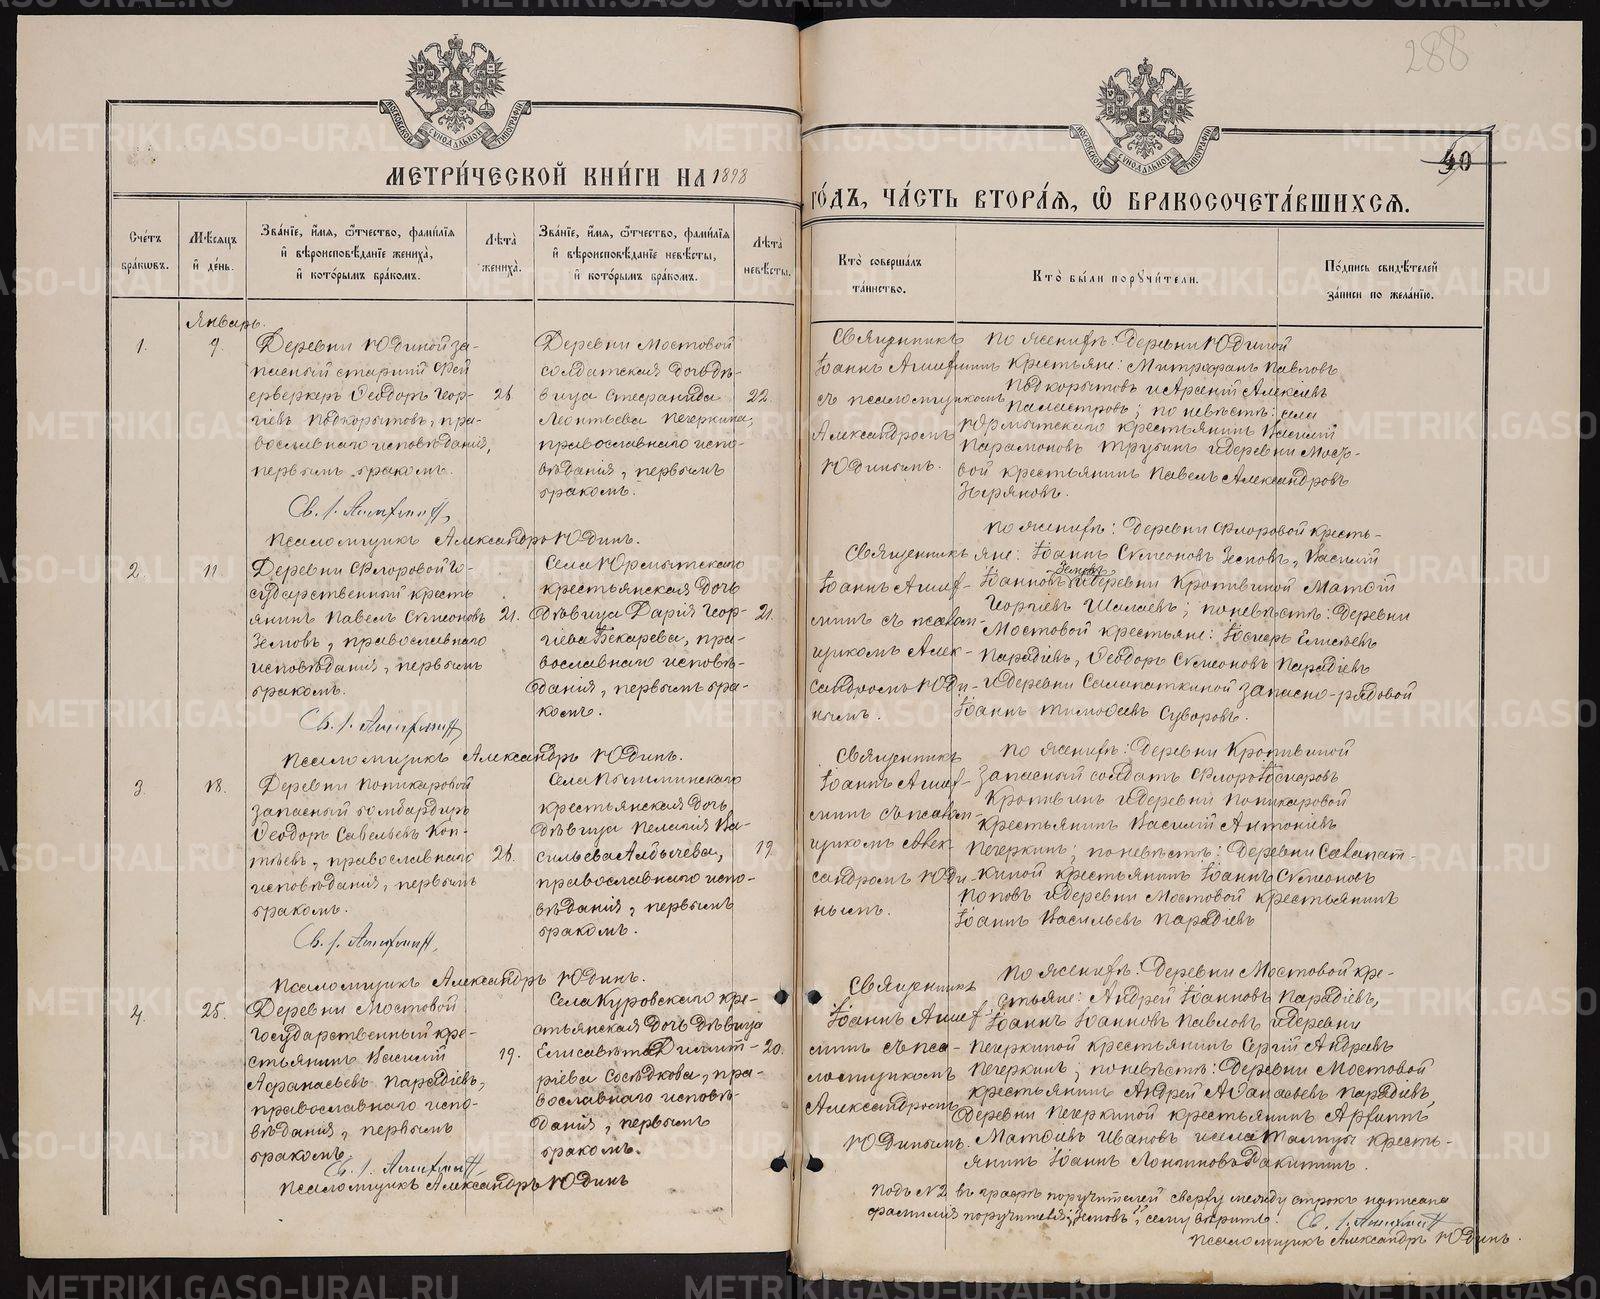 288
МЕТРИ́ЧЕСКОЙ КНИ́ГИ НА 1898
ГО́ДЪ, ЧА́СТЬ ВТОРА́Я, Ѡ҆ БРАКОСОЧЕТА́ВШИХСЯ.
Сче́тъ бра́кѡвъ.
Мѣ́сяцъ и҆ де́нь.
Зва́нїе, и҆́мя, ѻ҆́тчество, фами́лїя
и҆ вѣроисповѣ́данїе жениха̀,
и҆ кото́рымъ бра́комъ.
Лѣ́та̀ жениха̀.
Зва́нїе, и҆́мя, ѻ҆́тчество, фами́лїя
и҆ вѣроисповѣ́данїе невѣ́сты,
и҆ кото́рымъ бра́комъ.
Лѣ́та̀ невѣ́сты.
Кто̀ соверша́лъ
та́инство.
Кто̀ бы́ли порꙋчи́тели.
По́дпись свидѣ́телей
за́писи по жела́нїю.
Январь.
1.
Деревни Юдиной за-
пасный старший фей
ерверкеръ Ѳеодоръ Геор-
гіевъ Подкорытовъ, пра-
вославнаго исповѣданія,
первымъ бракомъ.
26
Деревни Мостовой
солдатская дочь дѣ-
вица Стефанида
Леонтьева Печеркина,
православнаго испо-
вѣданія, первымъ
бракомъ.
22.
Священникъ
Іоаннъ
съ псаломщикомъ
Александромъ
Юдинымъ.
По женихѣ: Деревни Юдиной
крестьяне: Митрофанъ Павловъ
Подкорытовъ и Арсеній Алексѣевъ
Палластровъ; по невѣстѣ: села
Юрмытскаго крестьянинъ Василій
Парамоновъ Трубинъ и деревни Мосто-
вой крестьянинъ Павелъ Александровъ
Зыряновъ.
Псаломщикъ Александръ Юдинъ.
2.
11.
Деревни Флоровой го-
сударственный кресть
янинъ Павелъ Сѵмеоновъ
Земовъ, православнаго
исповѣданія, первымъ
бракомъ.
21.
Села Юрмытскаго
крестьянская дочь
дѣвица Дарія Геор-
гіева Бекарева, пра-
вославнаго исповѣ-
данія, первымъ бра-
комъ.
21.
Священникъ
Іоаннъ
съ псалом-
щикомъ Алек-
сандромъ Юди-
нымъ.
По женихѣ: Деревни Флоровой кресть-
яне: Іоаннъ Сѵмеоновъ Земовъ, Василій
Іоанновъ Земовъ и деревни Кропивиной Матѳій
Георгіевъ Шалаевъ; по невѣстѣ: Деревни
Мостовой крестьяне: Іосифъ Елисѣевъ
Парадѣевъ, Ѳеодоръ Сѵмеоновъ Парадѣевъ
и деревни Салопаткиной запасно-рядовой
Іоаннъ Тимоѳеевъ Суворовъ.
Псаломщикъ Александръ Юдинъ.
3.
18.
Деревни Попикаровой
запасный бомбардиръ
Ѳеодоръ Савельевъ Коп-
тѣевъ, православнаго
исповѣданія, первымъ
бракомъ.
26.
Села Пышминскаго
крестьянская дочь
дѣвица Пелагія Ва-
сильева Албычева,
православнаго испо-
вѣданія, первымъ
бракомъ.
19
Священникъ
Іоаннъ
съ псалом-
щикомъ Алек-
сандромъ Юди-
нымъ.
По женихѣ: Деревни Кропивиной
запасный солдатъ Флоръ Іосифовъ
Кропивинъ и деревни Попикаровой
крестьянинъ Василій Антоніевъ
Печеркинъ; по невѣстѣ: Деревни Салапат-
киной крестьянинъ Іоаннъ Сѵмеоновъ
Поповъ и деревни Мостовой крестьянинъ
Іоаннъ Васильевъ Парадѣевъ
Псаломщикъ Александръ Юдинъ.
4.
25.
Деревни Мостовой
государственный кре-
стьянинъ Василій
Аѳанасьевъ Парадѣевъ,
православнаго испо-
вѣданія, первымъ
бракомъ.
19.
Села Куровскаго кре-
стьянская дочь дѣвица
Елисавета Димит-
ріева Сосѣдкова, пра-
вославнаго исповѣ-
данія, первымъ
бракомъ.
20.
Священникъ
Іоаннъ
съ пса-
ломщикомъ
Александромъ
Юдинымъ.
По женихѣ: Деревни Мостовой кре-
стьяне: Андрей Іоанновъ Парадѣевъ,
Іоаннъ Іоанновъ Павловъ и деревни
Печеркиной крестьянинъ Сергій Андреевъ
Печеркинъ; по невѣстѣ: Деревни Мостовой
крестьянинъ Андрей Аѳанасьевъ Парадѣевъ,
Деревни Печеркиной крестьянинъ
Матѳіевъ Ивановъ и села Талицы кресть-
янинъ Іоаннъ Лонгиновъ Ракитинъ.
Псаломщикъ Александръ Юдинъ
Подъ №2 въ графѣ поручителей сверху между строкъ написана
фамилія поручителя „Земовъ“, сему вѣрить.
Псаломщикъ Александръ Юдинъ.
METRIKI.GASO-URAL.RU